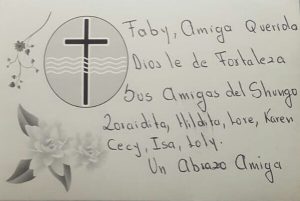 Faby, Amiga Querida
Dios le de Fortaleza
Sus Amigas del Shungo
Zoraidita, Hildita, Lore, Karen
Cecy, Isa, Loly.
Un Abrazo Amiga